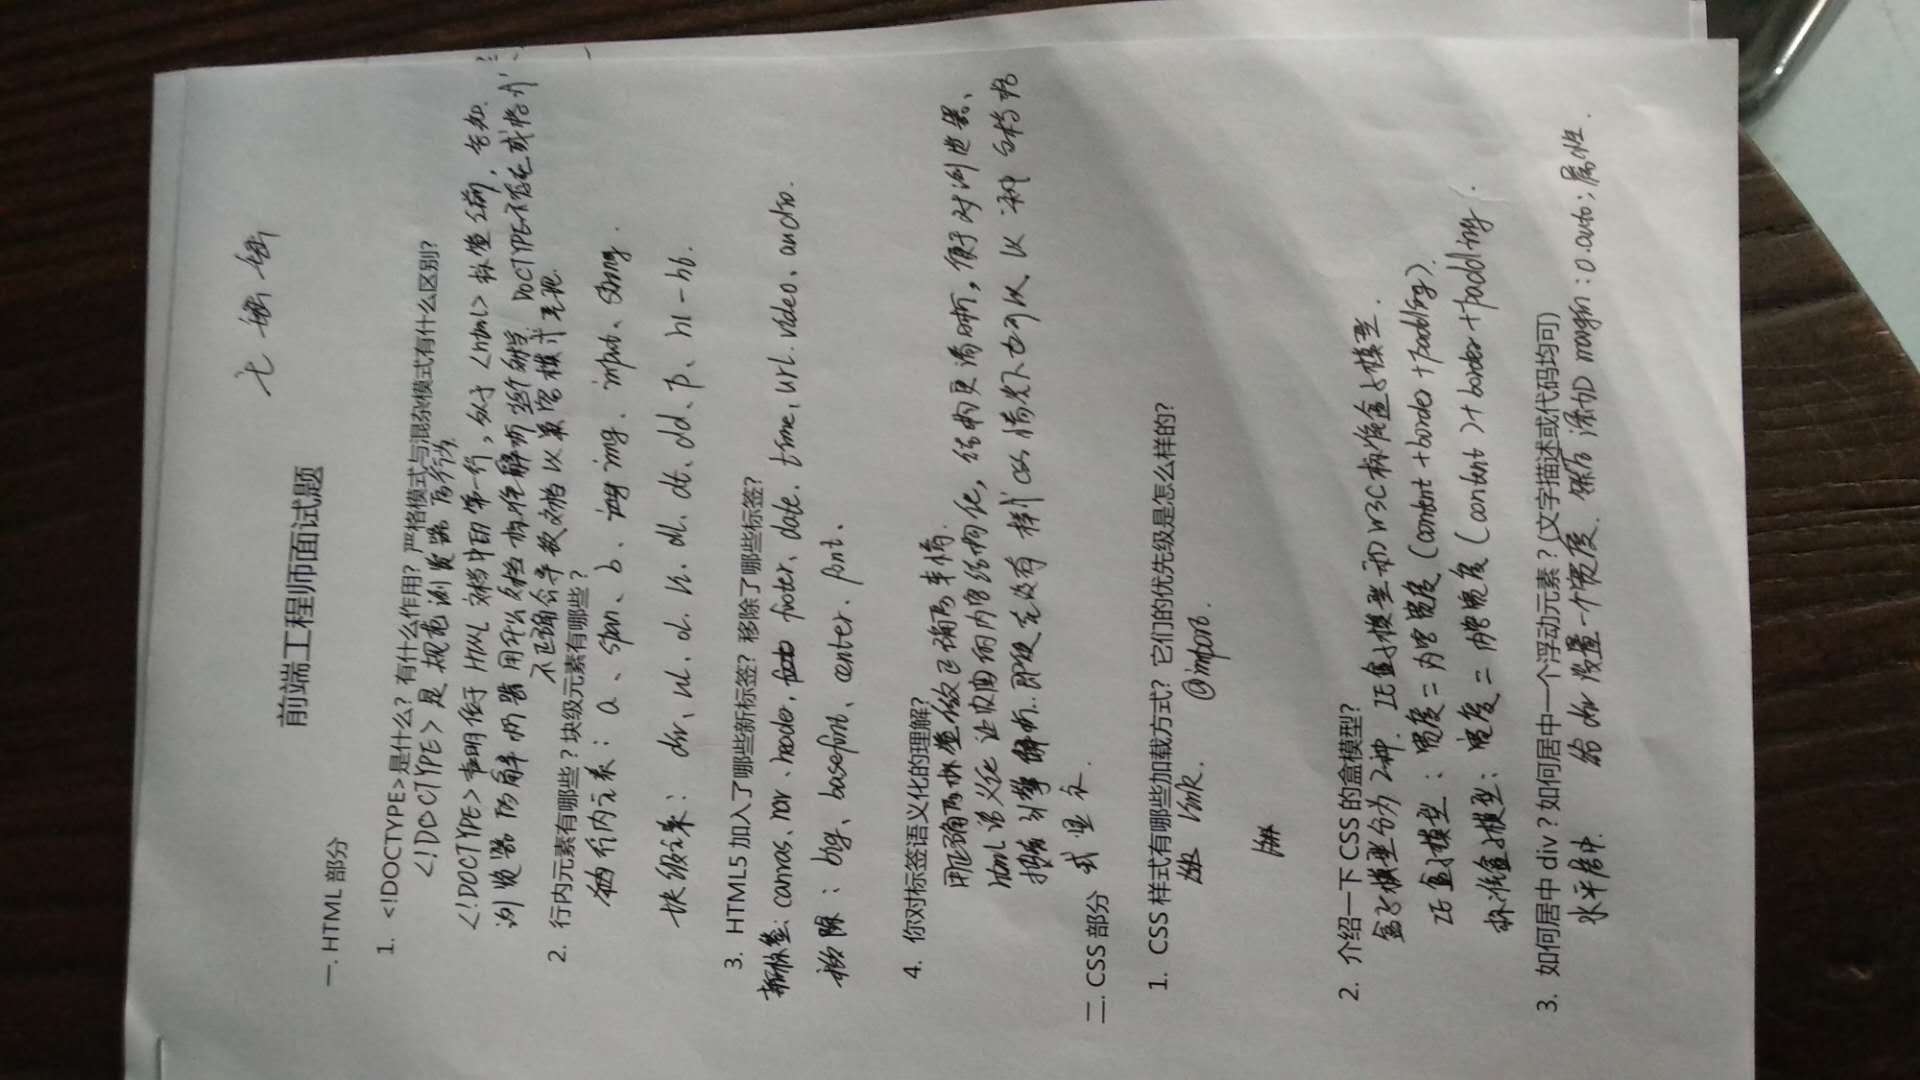 前端工程师面试题
一. HTML 部分
1. <!DOCTYPE>是什么? 有什么作用? 严格模式与混杂模式有什么区别?
<!DOCTYPE> 是 规范 浏览器 的行为.
<!DOCTYPE> 声明位于 HTML 文档中的第一行, 处于 <html> 标签之前, 告知
浏览器 的解析器 用什么文档标准解析这个文档. DOCTYPE不存在或格式
不正确会导致文档以兼容模式呈现.
2. 行内元素有哪些?块级元素有哪些?
行内元素: a、span、b、img、input、strong.
块级元素: div、ul、ol、li、dl、dt、dd、p、h1-h6.
3. HTML5 加入了哪些新标签? 移除了哪些标签?
新标签: canvas、nav、header、footer、date、time、url、video、audio.
移除: big、basefont、center、font.
4. 你对标签语义化的理解?
用正确的标签做正确的事情.
html 语义化 让页面的内容结构化, 结构更清晰, 便于对浏览器、
搜索引擎解析. 即使在没有样式css情况下也可以以一种文档格
式显示.
二. CSS 部分
1. CSS 样式有哪些加载方式? 它们的优先级是怎么样的?
link. @import.
2. 介绍一下 CSS 的盒模型?
盒子模型分为2种. IE盒子模型和W3C标准盒子模型.
IE盒子模型: 宽度=内容宽度 (content+border+padding).
标准盒子模型: 宽度=内容宽度 (content)+border+padding.
3. 如何居中 div?如何居中一个浮动元素?(文字描述或代码均可)
水平居中. 给div 设置一个宽度. 然后添加 margin:0.auto; 属性.